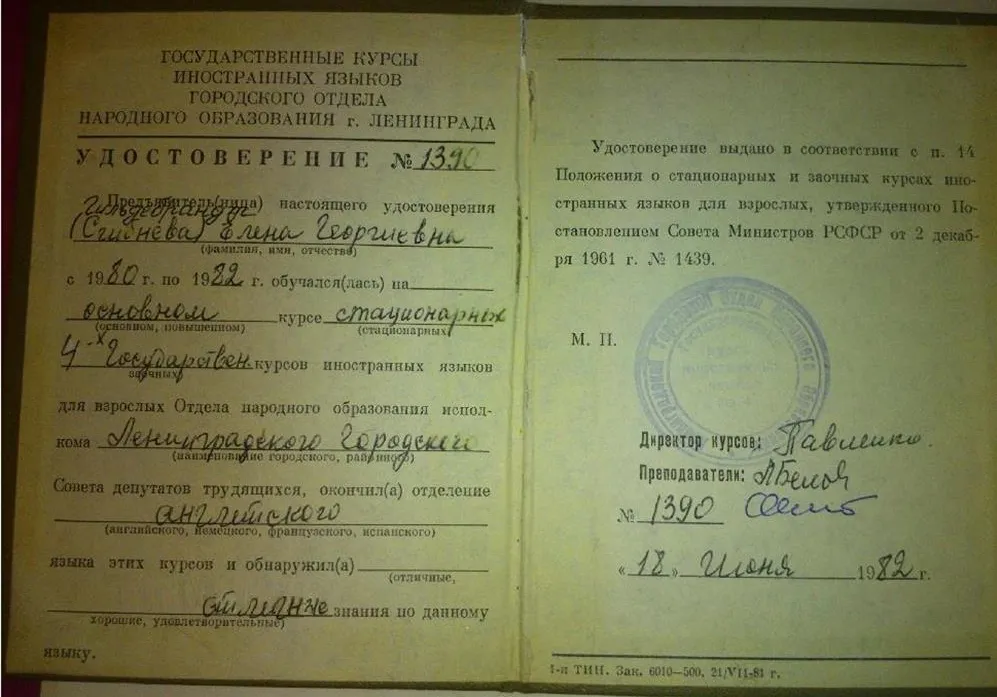 ГОСУДАРСТВЕННЫЕ КУРСЫ
ИНОСТРАННЫХ ЯЗЫКОВ
ГОРОДСКОГО ОТДЕЛА
НАРОДНОГО ОБРАЗОВАНИЯ г. ЛЕНИНГРАДА
УДОСТОВЕРЕНИЕ № 1390
Предъявитель(ница) настоящего удостоверения
Гильдебрандт
(Сгибнева) Елена Георгиевна
(фамилия, имя, отчество)
с 1980 г. по 1982 г. обучался(лась) на
основном курсе стационарных
(основном, повышенном) (стационарных,
4-х Государствен. курсов иностранных языков
заочных)
для взрослых Отдела народного образования испол-
кома Ленинградского Городского
(наименование городского, районного)
Совета депутатов трудящихся, окончил(а) отделение
английского
(английского, немецкого, французского, испанского)
языка этих курсов и обнаружил(а)
(отличные,
отличные знания по данному
хорошие, удовлетворительные)
языку.
Удостоверение выдано в соответствии с п. 14
Положения о стационарных и заочных курсах ино-
странных языков для взрослых, утвержденного По-
становлением Совета Министров РСФСР от 2 декаб-
ря 1961 г. № 1439.
М. П.
Директор курсов: Павленко.
Преподаватели: Л Белоя
№ 1390
«18» Июня 1982 г.
1-я ТИП. Зак. 6010—500, 21/VII-81 г.